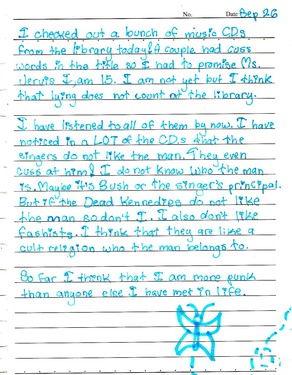 No. Date Sep 26
I checked out a bunch of music CDs
from the library today! A couple had cuss
words in the title so I had to promise Ms.
Jervis I am 15. I am not yet but I think
that lying does not count at the library.
I have listened to all of them by now. I have
noticed in a LOT of the CDs that the
singers do not like the man. They even
cuss at him! I do not know who the man
is. Maybe it's Bush or the singer's principal.
But if the Dead Kennedies do not like
the man so don't I. I also don't like
fashists. I think that they are like a
cult religion who the man belongs to.
So far I think that I am more punk
than anyone else I have met in life.